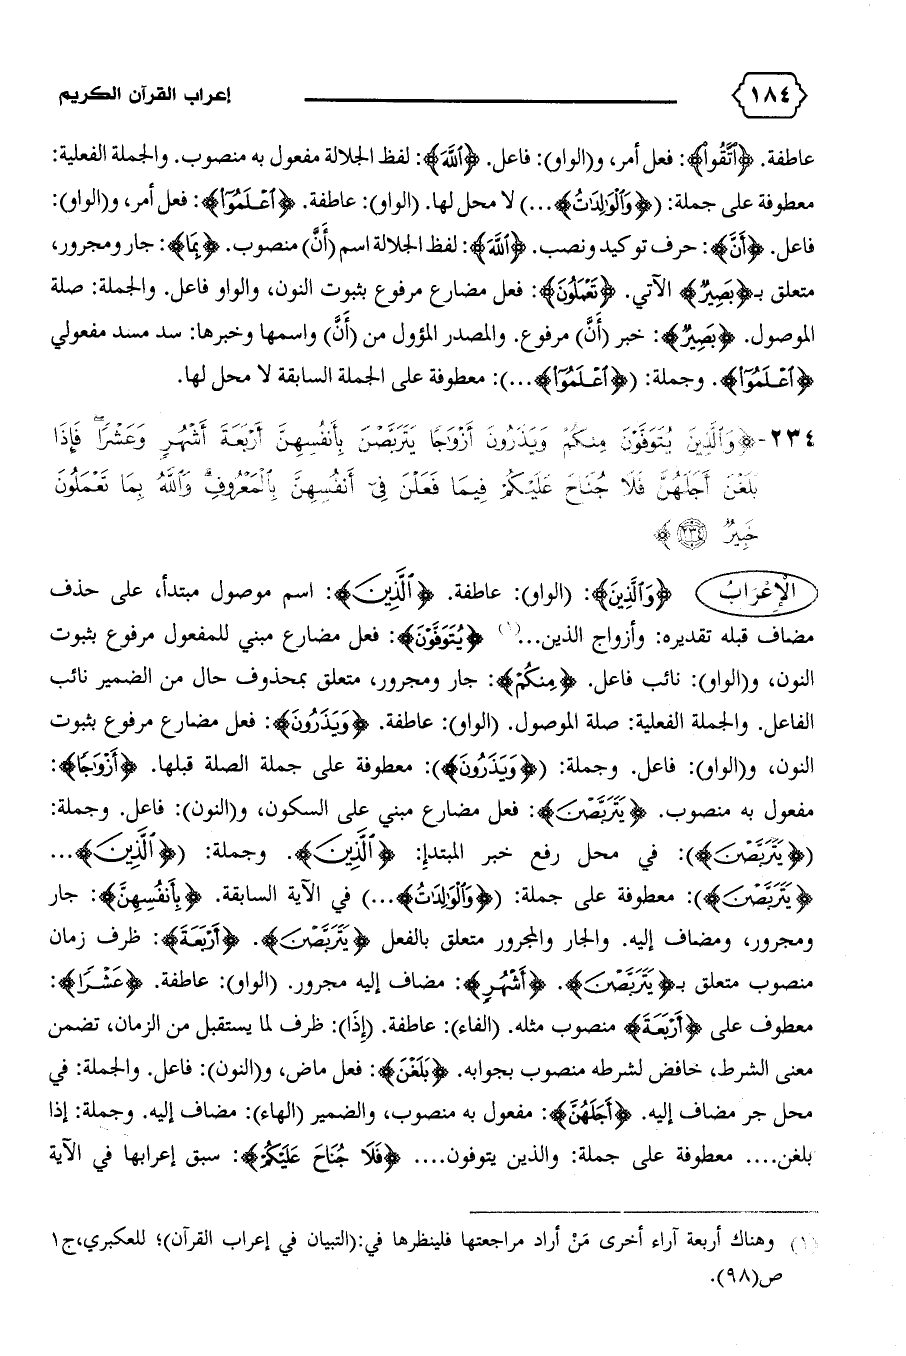 ١٨٤ إعراب القرآن الكريم
عاطفة. ﴿ٱتَّقُواْ﴾: فعل أمر، و(الواو): فاعل. ﴿ٱللَّهَ﴾: لفظ الجلالة مفعول به منصوب. والجملة الفعلية:
معطوفة على جملة: (﴿وَٱلْوَٰلِدَٰتُ﴾...) لا محل لها. (الواو): عاطفة. ﴿ٱعْلَمُوٓاْ﴾: فعل أمر، و(الواو):
فاعل. ﴿أَنَّ﴾: حرف توكيد ونصب. ﴿ٱللَّهَ﴾: لفظ الجلالة اسم (أَنَّ) منصوب. ﴿بِمَا﴾: جار ومجرور،
متعلق بـ﴿بَصِيرٌ﴾ الآتي. ﴿تَعْمَلُونَ﴾: فعل مضارع مرفوع بثبوت النون، والواو فاعل. والجملة: صلة
الموصول. ﴿بَصِيرٌ﴾: خبر (أَنَّ) مرفوع. والمصدر المؤول من (أَنَّ) واسمها وخبرها: سد مسد مفعولي
﴿ٱعْلَمُوٓاْ﴾. وجملة: (﴿ٱعْلَمُوٓاْ﴾...): معطوفة على الجملة السابقة لا محل لها.
٢٣٤- ﴿وَٱلَّذِينَ يُتَوَفَّوْنَ مِنكُمْ وَيَذَرُونَ أَزْوَٰجًا يَتَرَبَّصْنَ بِأَنفُسِهِنَّ أَرْبَعَةَ أَشْهُرٍ وَعَشْرًاۖ فَإِذَا
بَلَغْنَ أَجَلَهُنَّ فَلَا جُنَاحَ عَلَيْكُمْ فِيمَا فَعَلْنَ فِىٓ أَنفُسِهِنَّ بِٱلْمَعْرُوفِۗ وَٱللَّهُ بِمَا تَعْمَلُونَ
خَبِيرٌ ٢٣٤﴾
الْإِعْرَابُ ﴿وَٱلَّذِينَ﴾: (الواو): عاطفة. ﴿ٱلَّذِينَ﴾: اسم موصول مبتدأ، على حذف
مضاف قبله تقديره: وأزواج الذين...(١) ﴿يُتَوَفَّوْنَ﴾: فعل مضارع مبني للمفعول مرفوع بثبوت
النون، و(الواو): نائب فاعل. ﴿مِنكُمْ﴾: جار ومجرور، متعلق بمحذوف حال من الضمير نائب
الفاعل. والجملة الفعلية: صلة الموصول. (الواو): عاطفة. ﴿وَيَذَرُونَ﴾: فعل مضارع مرفوع بثبوت
النون، و(الواو): فاعل. وجملة: (﴿وَيَذَرُونَ﴾): معطوفة على جملة الصلة قبلها. ﴿أَزْوَٰجًا﴾:
مفعول به منصوب. ﴿يَتَرَبَّصْنَ﴾: فعل مضارع مبني على السكون، و(النون): فاعل. وجملة:
(﴿يَتَرَبَّصْنَ﴾): في محل رفع خبر المبتدإ: ﴿ٱلَّذِينَ﴾. وجملة: (﴿ٱلَّذِينَ﴾...
﴿يَتَرَبَّصْنَ﴾): معطوفة على جملة: (﴿وَٱلْوَٰلِدَٰتُ﴾...) في الآية السابقة. ﴿بِأَنفُسِهِنَّ﴾: جار
ومجرور، ومضاف إليه. والجار والمجرور متعلق بالفعل ﴿يَتَرَبَّصْنَ﴾. ﴿أَرْبَعَةَ﴾: ظرف زمان
منصوب متعلق بـ﴿يَتَرَبَّصْنَ﴾. ﴿أَشْهُرٍ﴾: مضاف إليه مجرور. (الواو): عاطفة. ﴿عَشْرًا﴾:
معطوف على ﴿أَرْبَعَةَ﴾ منصوب مثله. (الفاء): عاطفة. (إِذَا): ظرف لما يستقبل من الزمان، تضمن
معنى الشرط، خافض لشرطه منصوب بجوابه. ﴿بَلَغْنَ﴾: فعل ماض، و(النون): فاعل. والجملة: في
محل جر مضاف إليه. ﴿أَجَلَهُنَّ﴾: مفعول به منصوب، والضمير (الهاء): مضاف إليه. وجملة: إذا
بلغن.... معطوفة على جملة: والذين يتوفون.... ﴿فَلَا جُنَاحَ عَلَيْكُمْ﴾: سبق إعرابها في الآية
(١) وهناك أربعة آراء أخرى مَنْ أراد مراجعتها فلينظرها في:(التبيان في إعراب القرآن)؛ للعكبري،ج١
ص(٩٨).